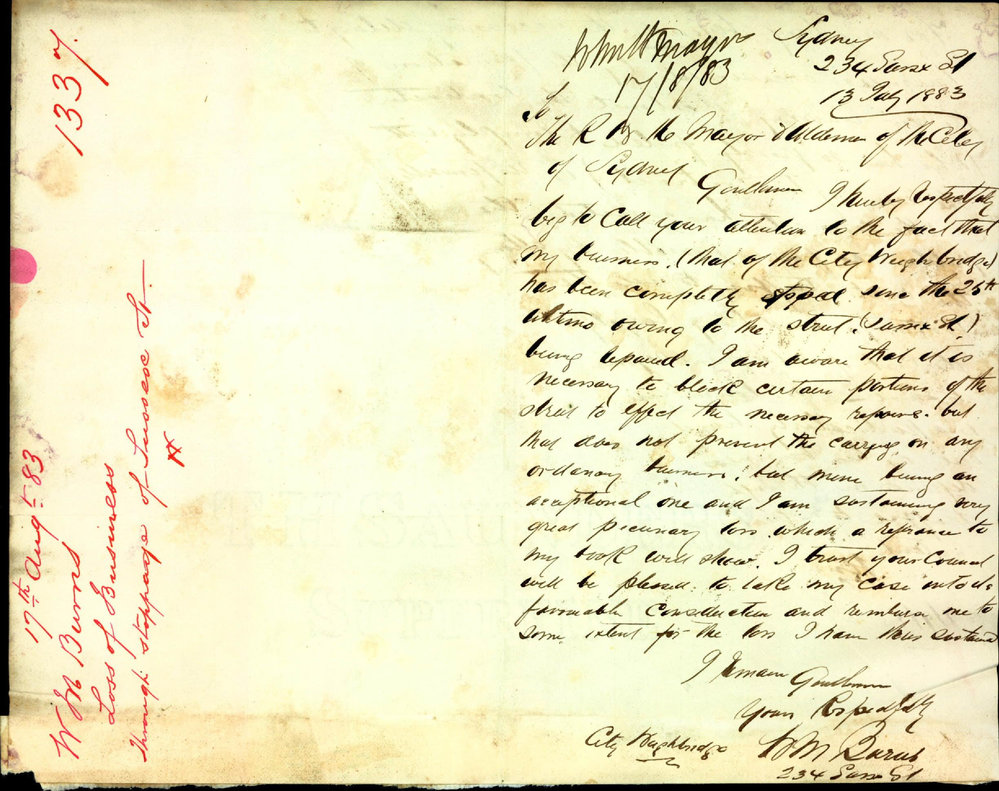 1337
17th Augt 83
W M Burns
Loss of Business
through stoppage of Sussex St.
Mayor
17/8/83
Sydney
234 Sussx St
13 July 1883
To
The R the Mayor & Aldermen of the City
of Sydney
Gentlemen I hereby respectfully
beg to call your attention to the fact that
my business. (that of the City Weighbridge)
has been completely stopped since the 25th
ultimo owing to the street. (Sussex St.)
being repaired. I am aware that it is
necessary to block certain portions of the
street to effect the necessary repairs. but
that does not prevent the carrying on any
ordanary business. but mine being an
exceptional one and I am sustaining very
great pecunary loss which a referance to
my book will show. I trust your Council
will be pleased to take my case into its
favorable construction and remburse me to
some extent for the loss I have thus sustained
I remain Gentlemen
Yours Respectfully
W M Burns
City Weighbridge
234 Sussx St